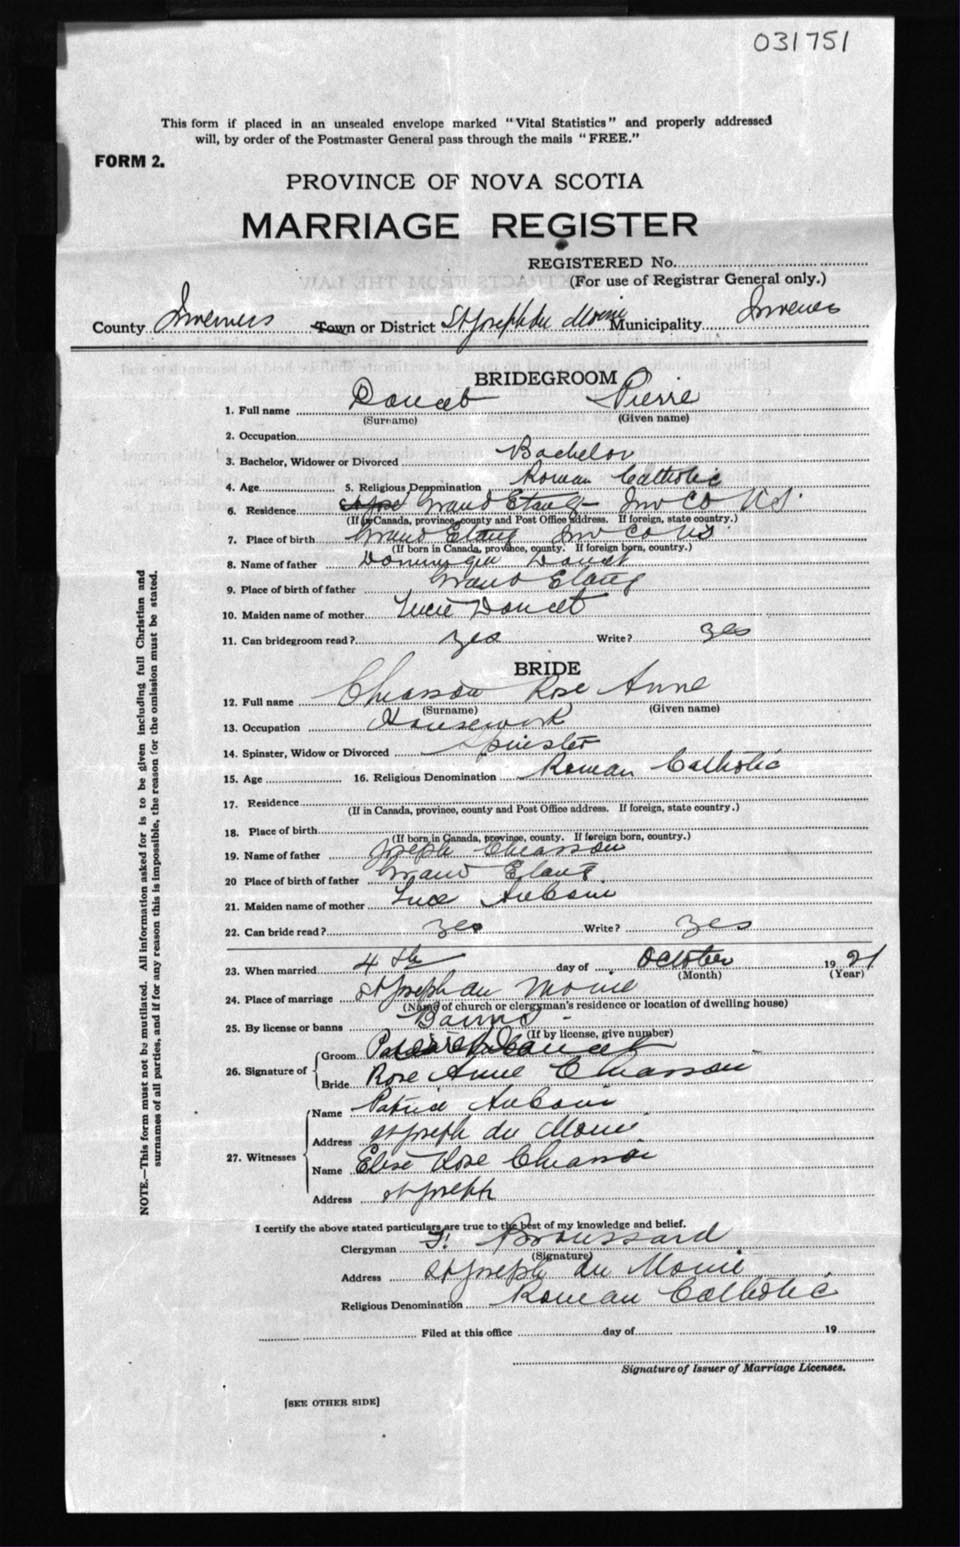 031751
This form if placed in an unsealed envelope marked "Vital Statistics" and properly addressed
will, by order of the Postmaster General pass through the mails "FREE."
FORM 2.
PROVINCE OF NOVA SCOTIA
MARRIAGE REGISTER
REGISTERED No.
(For use of Registrar General only.)
County Inverness Town or District St Joseph du Moine Municipality Inverness
BRIDEGROOM
1. Full name Doucet Pierre
(Surname) (Given name)
2. Occupation
3. Bachelor, Widower or Divorced Bachelor
4. Age 5. Religious Denomination Roman Catholic
6. Residence Grand Etang Inv Co NS.
(If in Canada, province, county and Post Office address. If foreign, state country.)
7. Place of birth Grand Etang Inv Co NS
(If born in Canada, province, county. If foreign born, country.)
8. Name of father Doucet
9. Place of birth of father Grand Etang
10. Maiden name of mother Lucie Doucet
11. Can bridegroom read? yes Write? yes
BRIDE
12. Full name Chiasson Rose Anne
(Surname) (Given name)
13. Occupation Housework
14. Spinster, Widow or Divorced Spinster
15. Age 16. Religious Denomination Roman Catholic
17. Residence
(If in Canada, province, county and Post Office address. If foreign, state country.)
18. Place of birth
(If born in Canada, province, county. If foreign born, country.)
19. Name of father Joseph Chiasson
20 Place of birth of father Grand Etang
21. Maiden name of mother Luce Aucoin
22. Can bride read? yes Write? yes
23. When married 4th day of October 1921
(Month) (Year)
24. Place of marriage St Joseph du Moine
(Name of church or clergyman's residence or location of dwelling house)
25. By license or banns Banns
(If by license, give number)
26. Signature of Groom Doucet
Bride Rose Anne Chiasson
27. Witnesses Name Patrice Aucoin
Address St Joseph du Moine
Name Elise Rose Chiasson
Address St Joseph
I certify the above stated particulars are true to the best of my knowledge and belief.
Clergyman Broussard
(Signature)
Address St Joseph du Moine
Religious Denomination Roman Catholic
Filed at this office day of 19
Signature of Issuer of Marriage Licenses.
[SEE OTHER SIDE]
NOTE.—This form must not be mutilated. All information asked for is to be given including full Christian and
surnames of all parties, and if for any reason this is impossible, the reason for the omission must be stated.